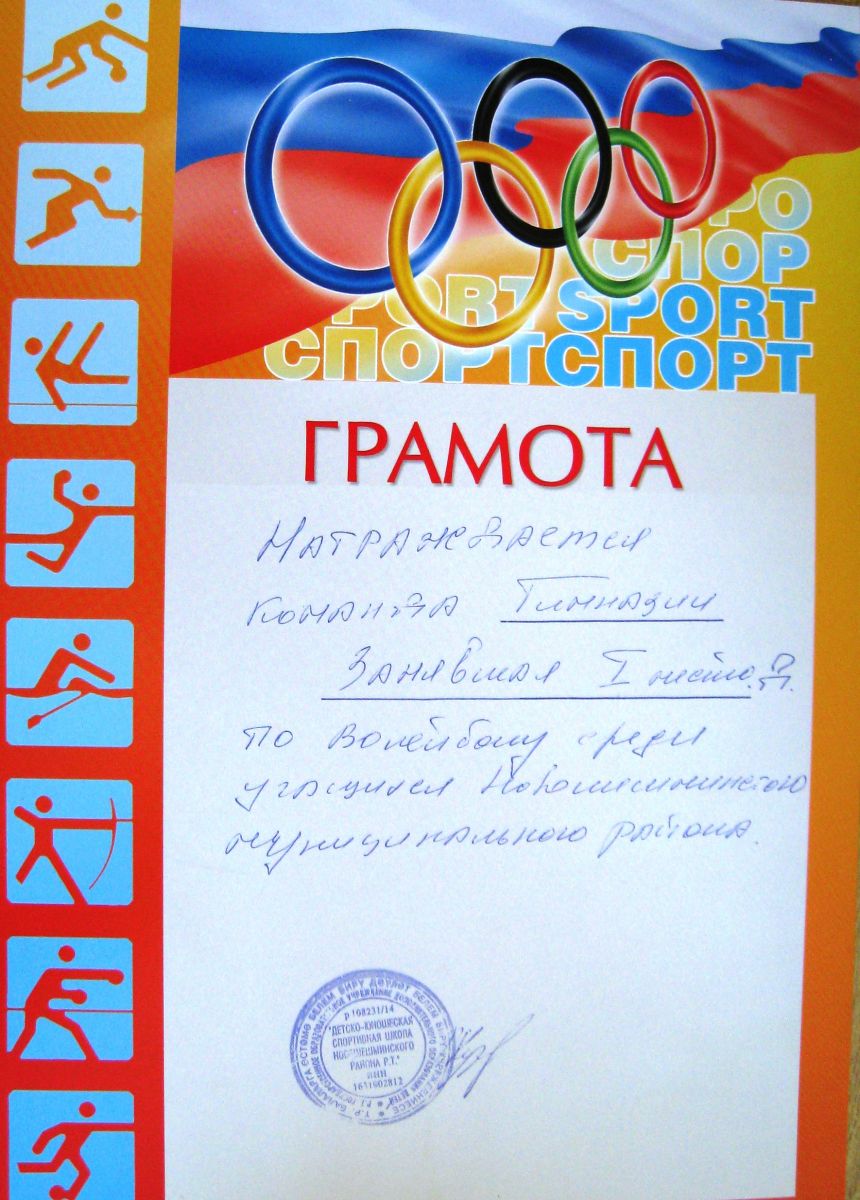 РО
СПОР
PORT SPORT
СПОРТ СПОРТ
ГРАМОТА
Награждается
команда Гимназии
Занявшая I место.
по Волейболу среди
учащихся Новошешминского
муниципального района.
"ДЕТСКО-ЮНОШЕСКАЯ
СПОРТИВНАЯ ШКОЛА
НОВОШЕШМИНСКОГО
РАЙОНА Р.Т."
ИНН